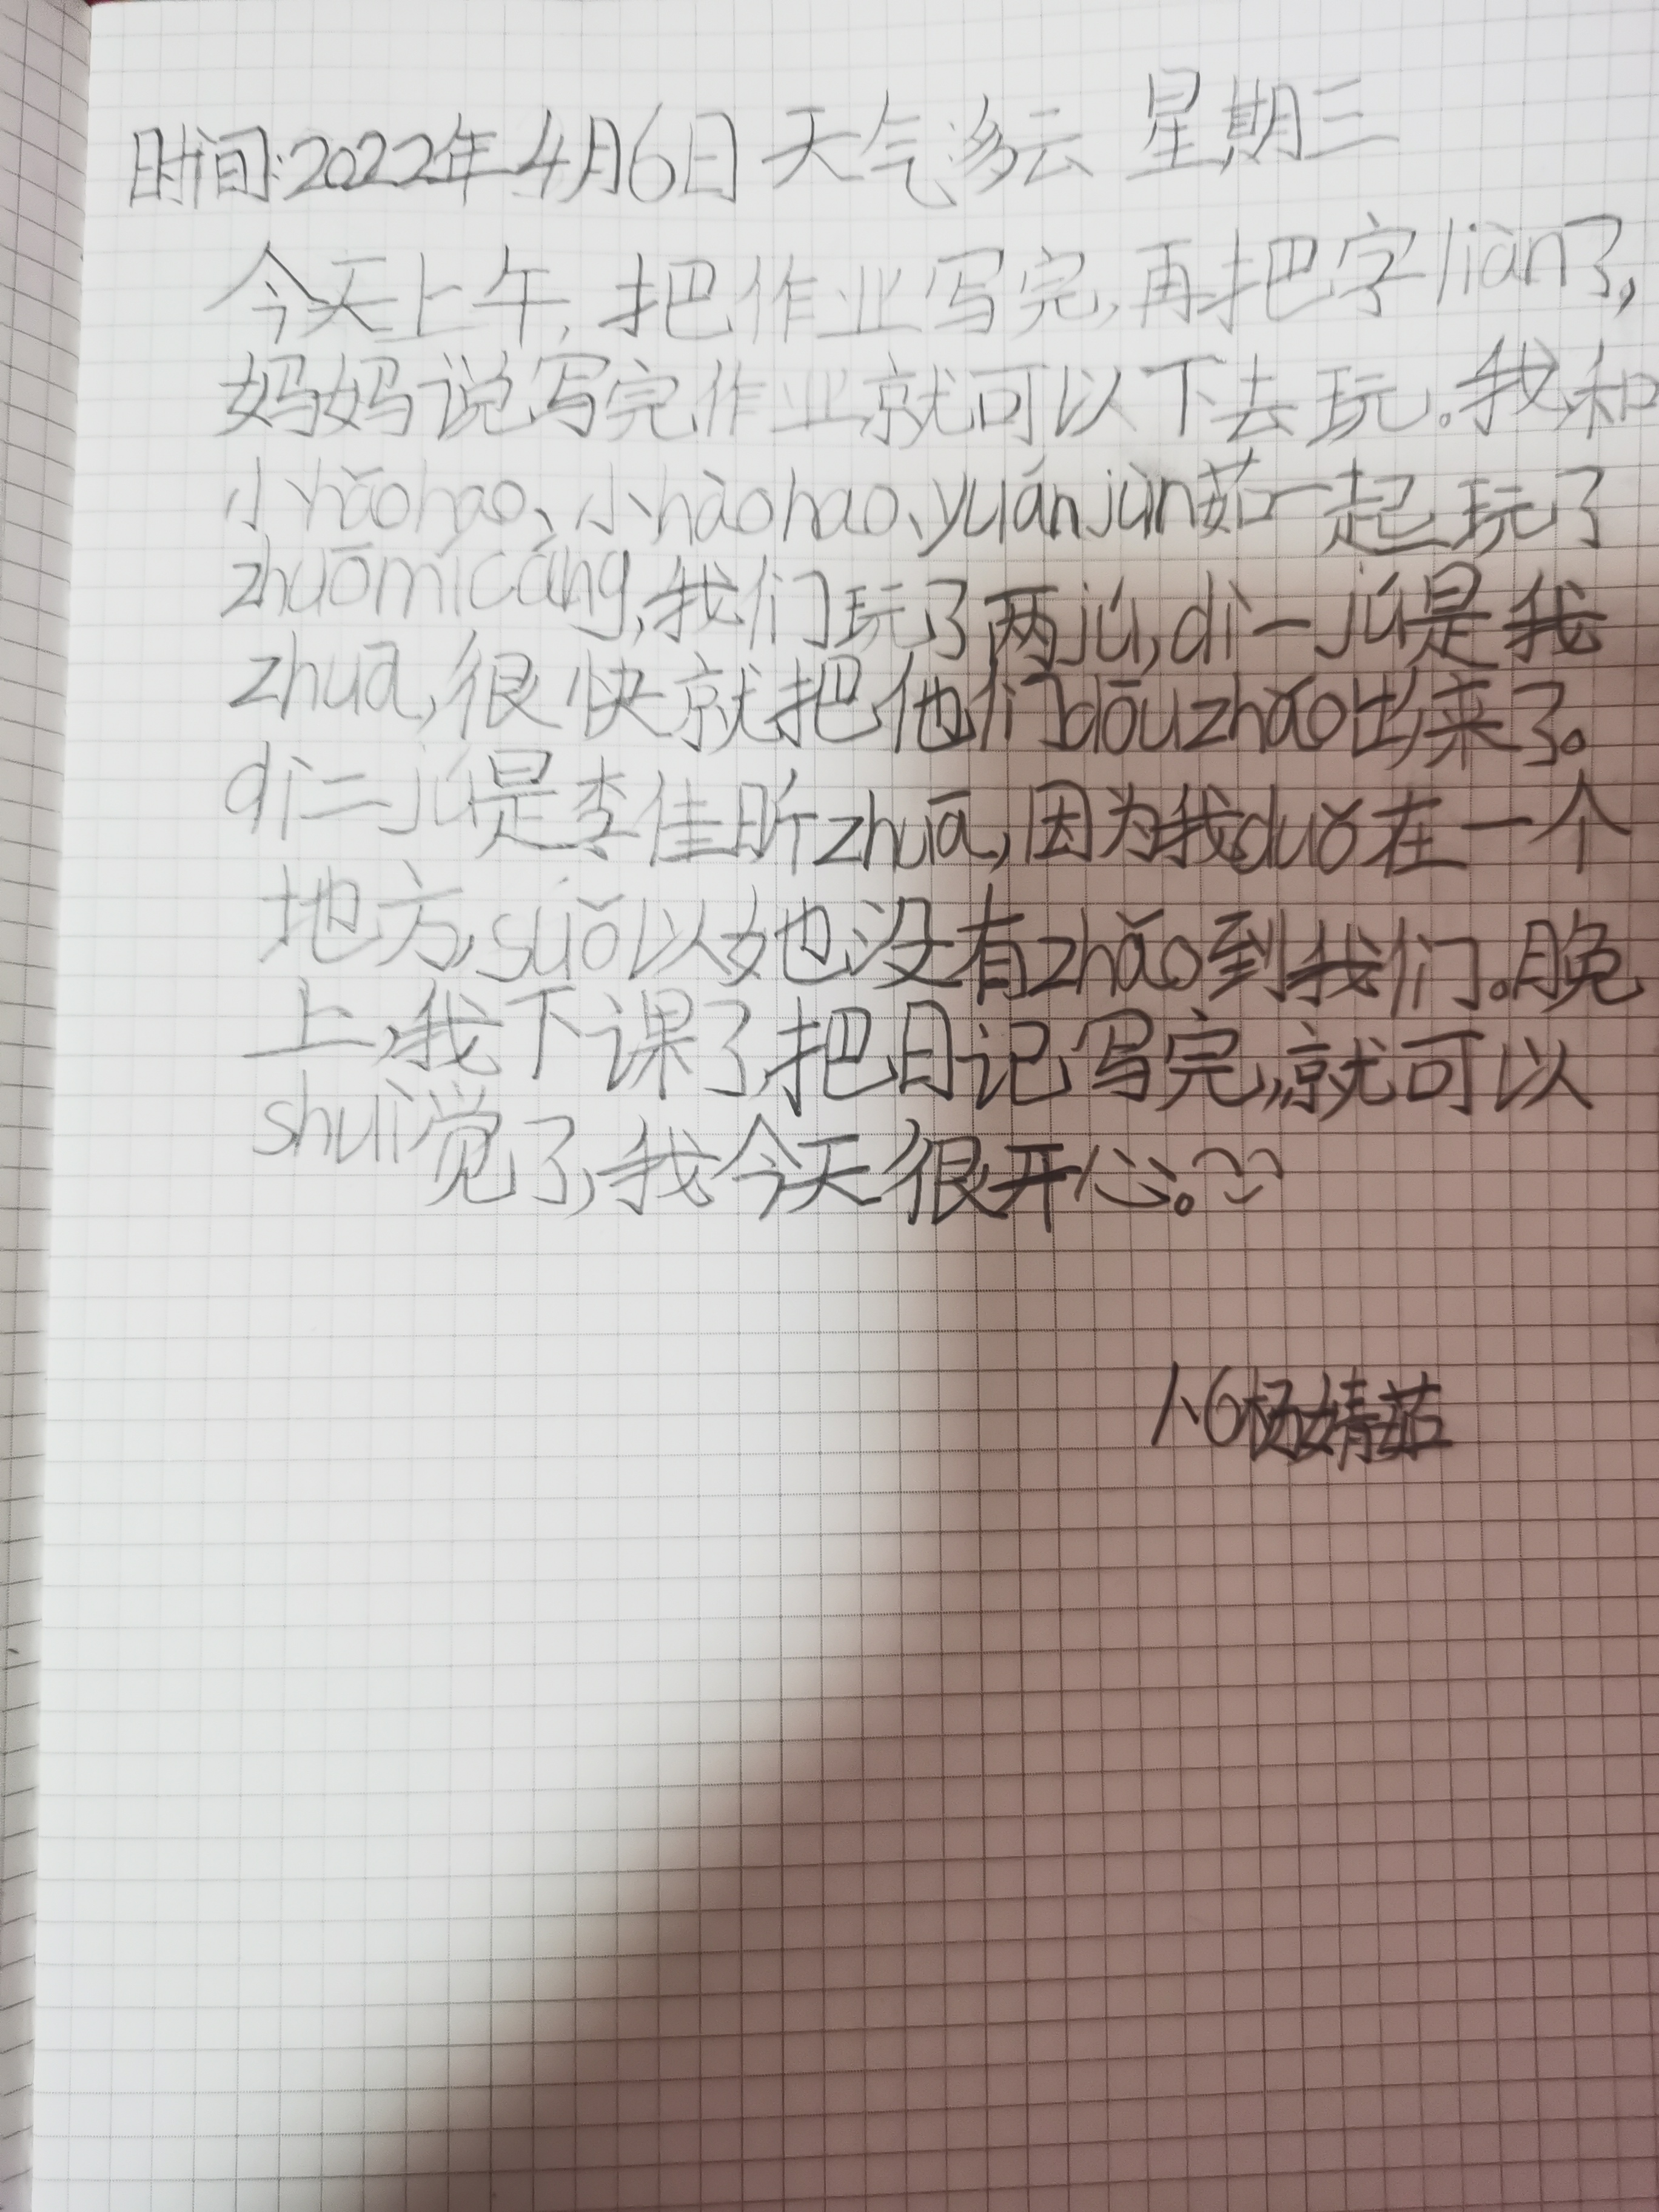 时间:2022年4月6日 天气多云 星期三
今天上午,把作业写完,再把字liàn了,
妈妈说写完作业就可以下去玩。我和
小hǎohao、小hàohao、yuánjùn茹一起玩了
zhuōmícáng,我们玩了两jú,dì一jú是我
zhuā,很快就把他们dōuzhǎo出来了。
dì二jú是李佳昕zhuā,因为我duǒ在一个
地方,suǒ以她没有zhǎo到我们。晚
上,我下课了,把日记写完,就可以
shuì觉了,我今天很开心。
1、6杨婧茹